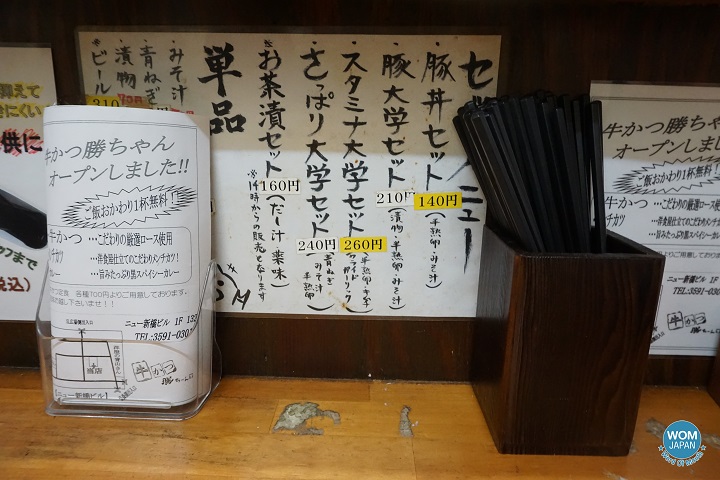 セットメニュー
・豚丼セット
140円
(半熟卵・みそ汁)
・豚大学セット
210円
(漬物・半熟卵・みそ汁)
・スタミナ大学セット
260円
・さっぱり大学セット
240円
青ねぎ
みそ汁
半熟卵
・お茶漬セット
160円
(だし汁・薬味)
※14時からの販売となります
単品
・みそ汁
・青ねぎ
・漬物
※ビール
210
牛かつ勝ちゃん
オープンしました!!
ご飯おかわり1杯無料!
牛かつ
…こだわりの厳選ロース使用
…洋食屋仕立てのこだわりメンチカツ!
カレー
…旨みたっぷり黒スパイシーカレー
定食 各種100円よりご用意しております。
ニュー新橋ビル 1F
TEL:3591-030
当店
牛かつ
ニュー新橋ビル1
牛かつ勝ちゃん
オープンしま
ご飯おかわり1杯無
…こだわりの厳選ロ
…洋食屋仕立てのこ
…旨みたっぷり黒ス
各種100円よりご
ニュー新橋ビ
TEL:35
牛かつ
WOM
JAPAN
Word Of Mouth